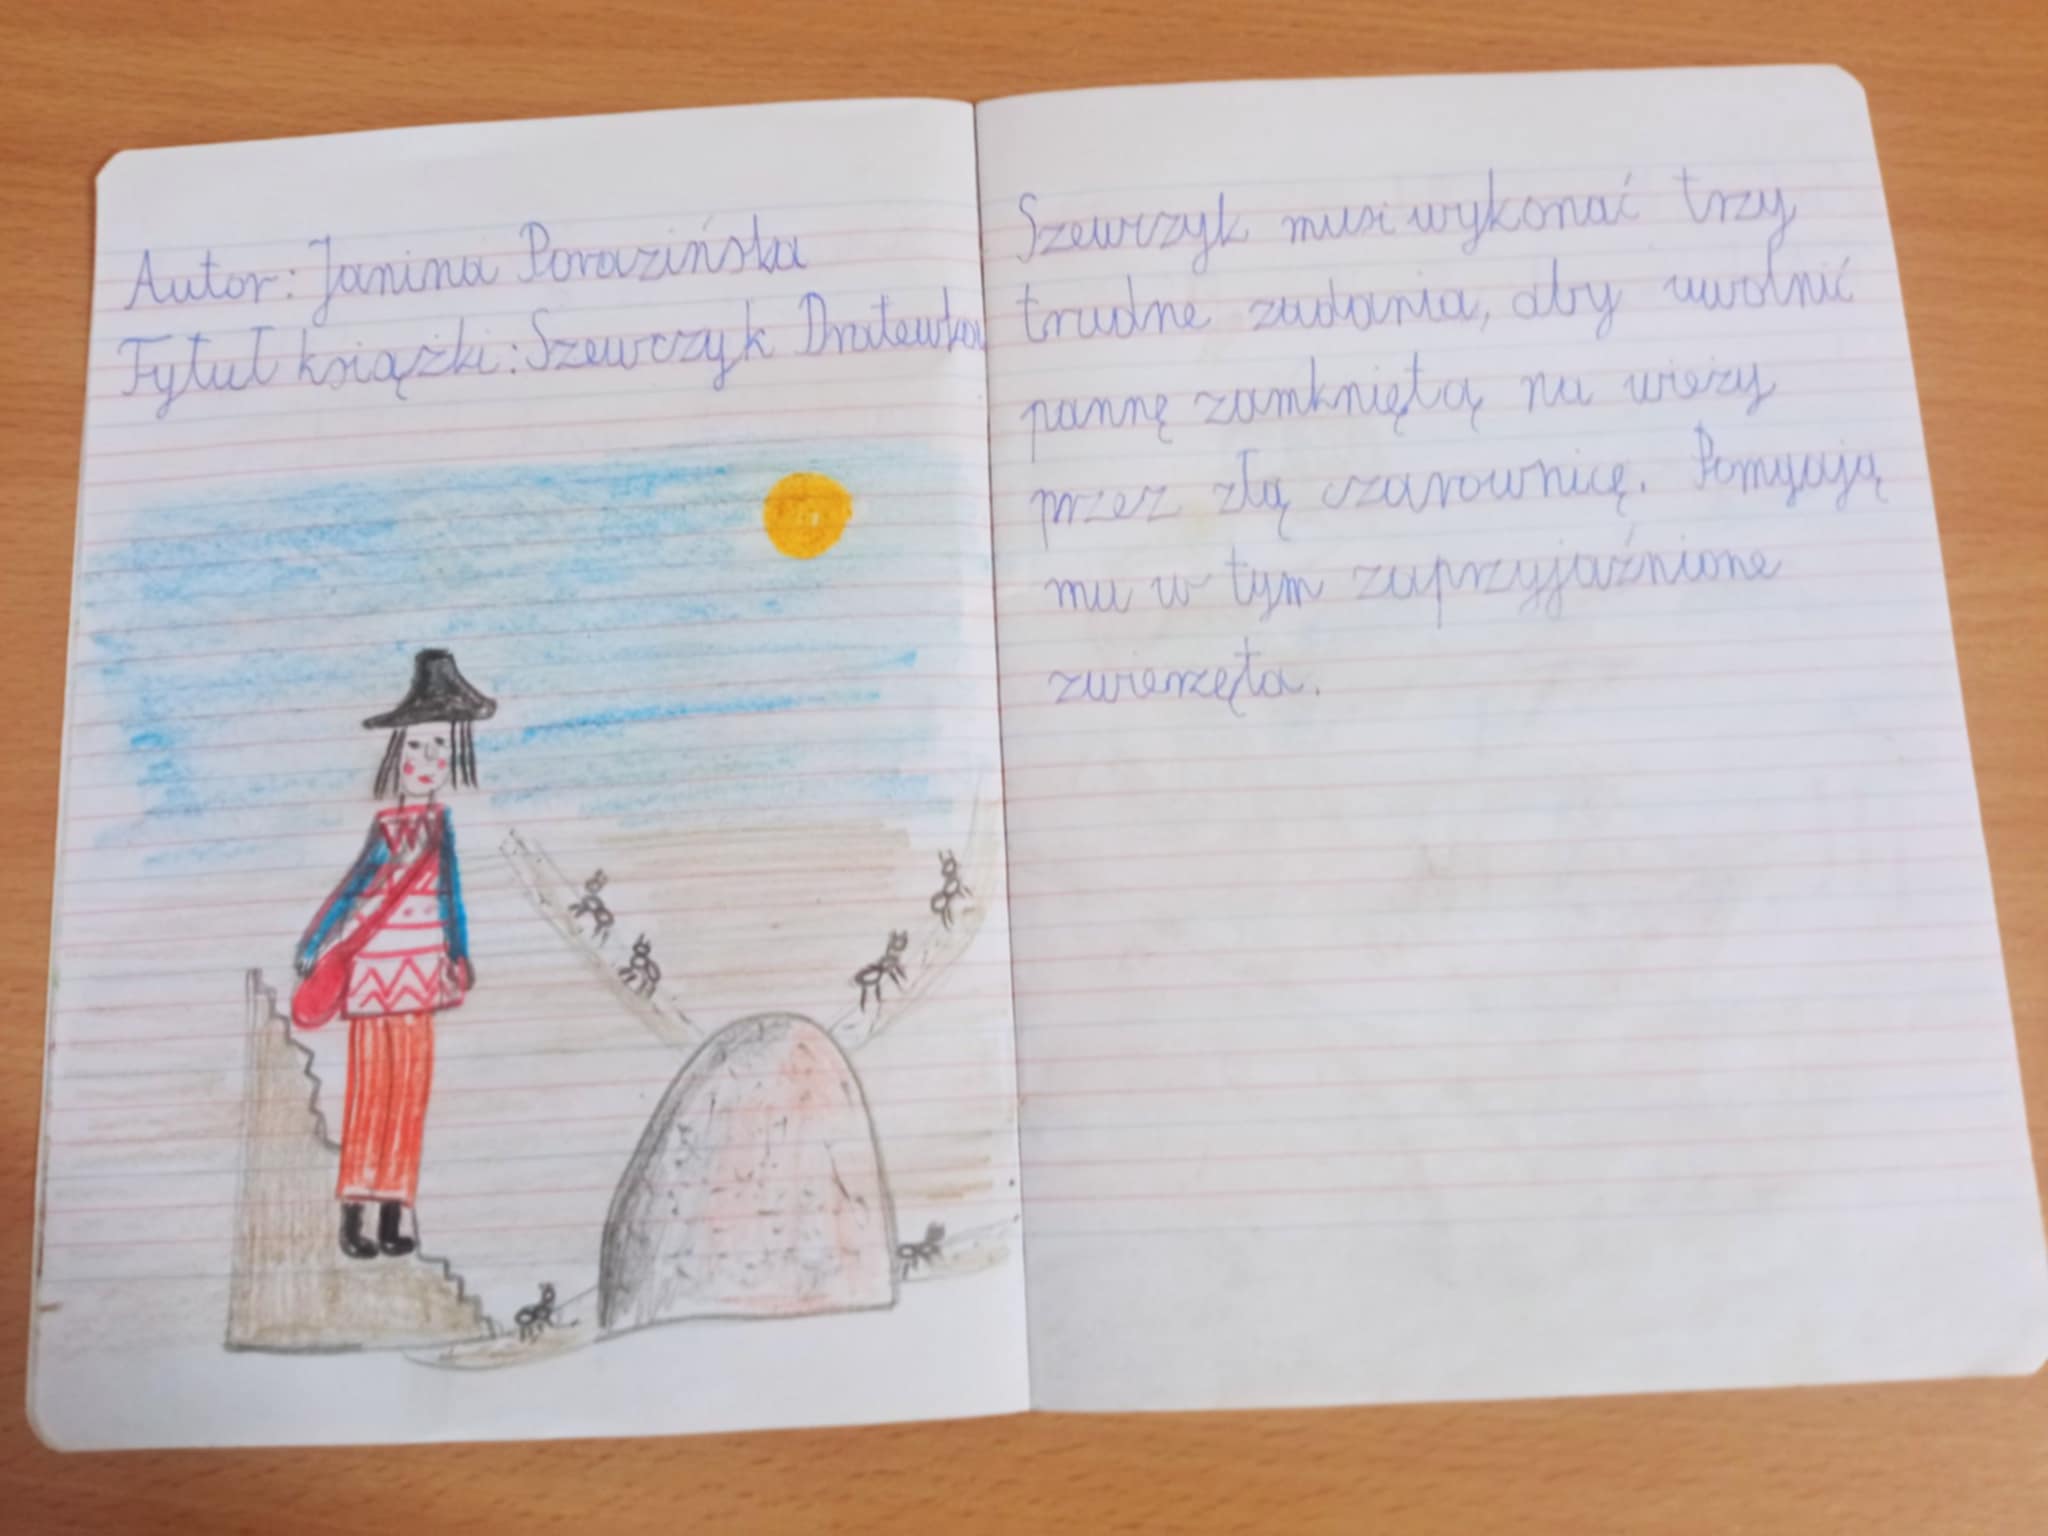 Autor: Janina Porazińska
Tytuł książki: Szewczyk Dratewka
Szewczyk musi wykonać trzy
trudne zadania, aby uwolnić
pannę zamkniętą na wieży
przez złą czarownicę. Pomgają
mu w tym zaprzyjaźnione
zwierzęta.